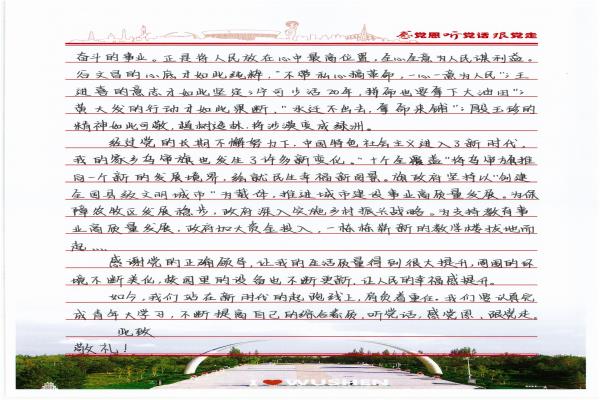 感党恩 听党话 跟党走
奋斗的事业。正是将人民放在心中最高位置,全心全意为人民谋利益。
谷文昌的心底才如此纯粹,“不带私心搞革命,一心一意为人民”;王
进喜的意志才如此坚定:宁可少活20年,拼命也要拿下大油田”;
黄大发的行动才如此果断,“水过不出去,拿命来铺”;殷玉珍的
精神如此可敬,植树造林,将沙漠变成绿洲。
经过党的长期不懈努力下,中国特色社会主义进入了新时代,
我的家乡乌审旗也发生了许多新变化。“十个全覆盖”将乌审旗推
向一个新的发展境界,绘就民生幸福新图景。旗政府坚持以“创建
全国县级文明城市”为载体,推进城市建设事业高质量发展。为保
障农牧区发展稳步,政府深入实施乡村振兴战略。为支持教育事
业高质量发展,政府加大资金投入,一栋栋崭新的教学楼拔地而
起....
感谢党的正确领导,让我的生活质量得到很大提升,周围的环
境不断美化,校园里的设备也不断更新,让人民的幸福感提升。
如今,我们站在新时代的起跑线上,肩负着重任。我们要认真完
成青年大学习,不断提高自己的综合素质,听党话,感党恩,跟党走。
此致
敬礼!
I WUSHEN